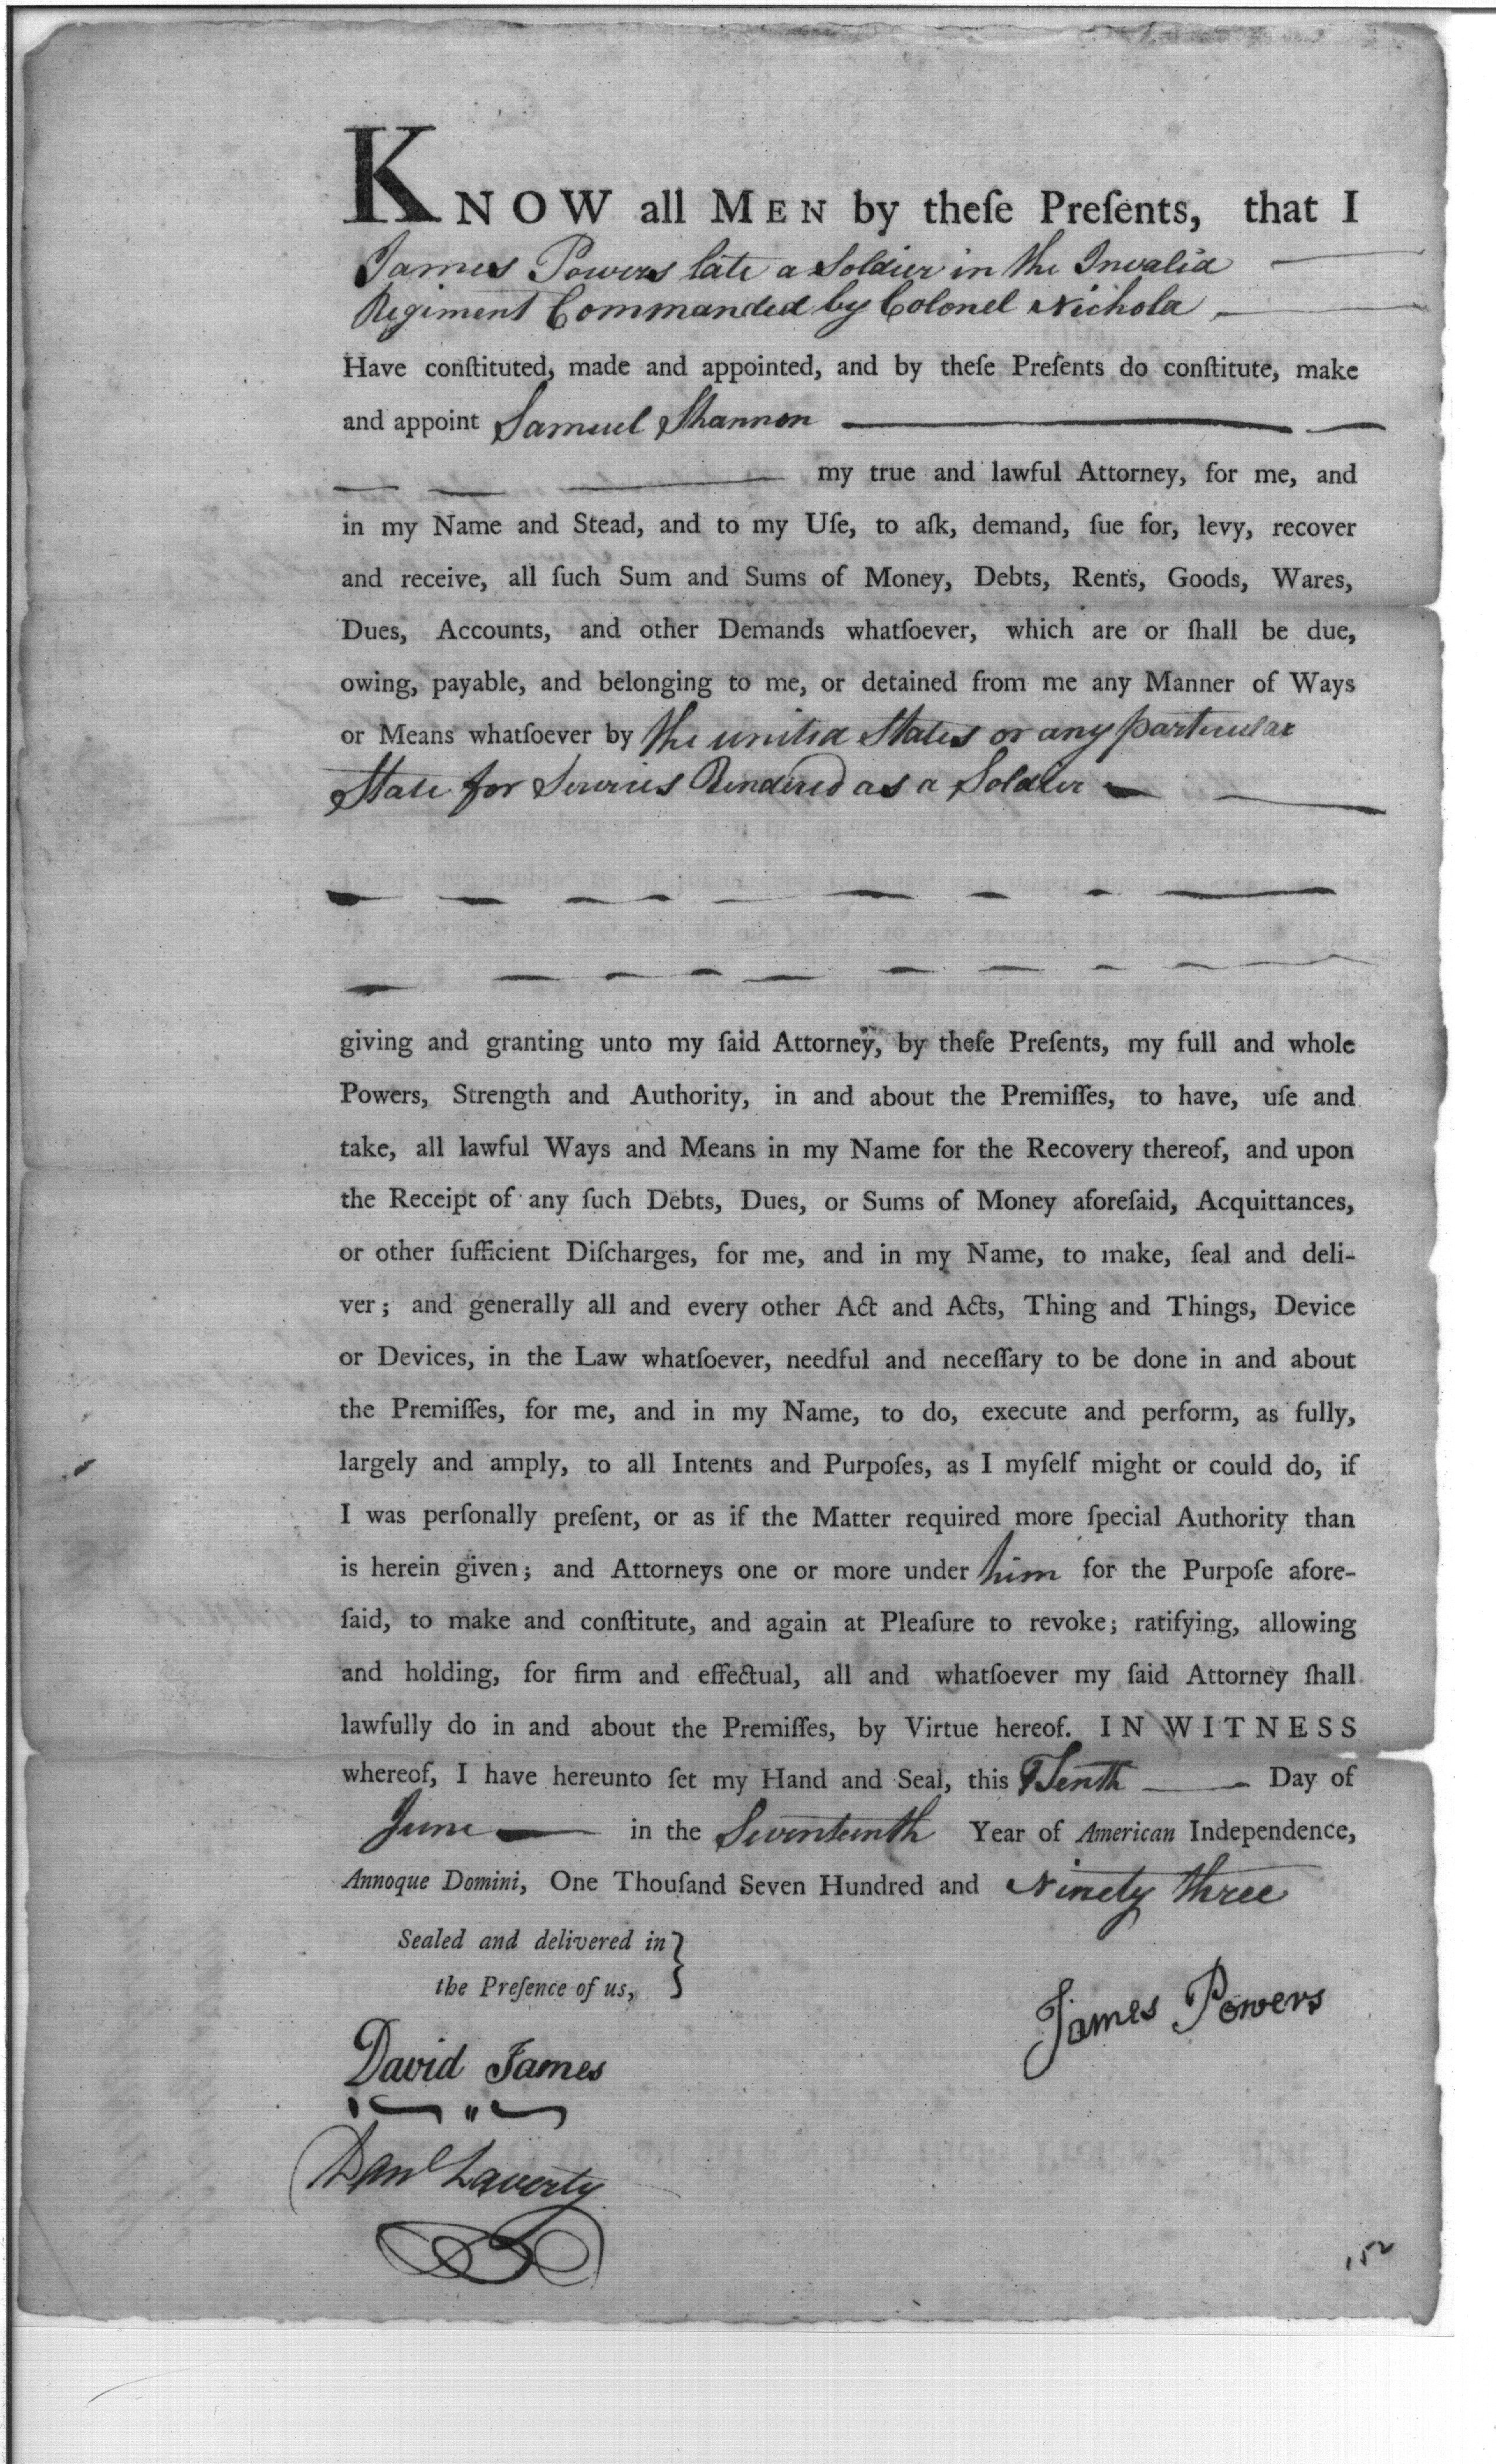 KNOW all MEN by theſe Preſents, that I
James Powers late a Soldier in the Invalid
Regiment Commanded by Colonel Nichola
Have conſtituted, made and appointed, and by theſe Preſents do conſtitute, make
and appoint Samuel Shannon
my true and lawful Attorney, for me, and
in my Name and Stead, and to my Uſe, to aſk, demand, ſue for, levy, recover
and receive, all ſuch Sum and Sums of Money, Debts, Rents, Goods, Wares,
Dues, Accounts, and other Demands whatſoever, which are or ſhall be due,
owing, payable, and belonging to me, or detained from me any Manner of Ways
or Means whatſoever by the united States or any particular
State for Services Rendered as a Soldier
giving and granting unto my ſaid Attorney, by theſe Preſents, my full and whole
Powers, Strength and Authority, in and about the Premiſſes, to have, uſe and
take, all lawful Ways and Means in my Name for the Recovery thereof, and upon
the Receipt of any ſuch Debts, Dues, or Sums of Money aforeſaid, Acquittances,
or other ſufficient Diſcharges, for me, and in my Name, to make, ſeal and deli-
ver; and generally all and every other Act and Acts, Thing and Things, Device
or Devices, in the Law whatſoever, needful and neceſſary to be done in and about
the Premiſſes, for me, and in my Name, to do, execute and perform, as fully,
largely and amply, to all Intents and Purpoſes, as I myſelf might or could do, if
I was perſonally preſent, or as if the Matter required more ſpecial Authority than
is herein given; and Attorneys one or more under him for the Purpoſe afore-
ſaid, to make and conſtitute, and again at Pleaſure to revoke; ratifying, allowing
and holding, for firm and effectual, all and whatſoever my ſaid Attorney ſhall
lawfully do in and about the Premiſſes, by Virtue hereof. IN WITNESS
whereof, I have hereunto ſet my Hand and Seal, this Tenth Day of
June in the Seventeenth Year of American Independence,
Annoque Domini, One Thouſand Seven Hundred and Ninety three
Sealed and delivered in
the Preſence of us,
James Powers
David James
Danl Laverty
152